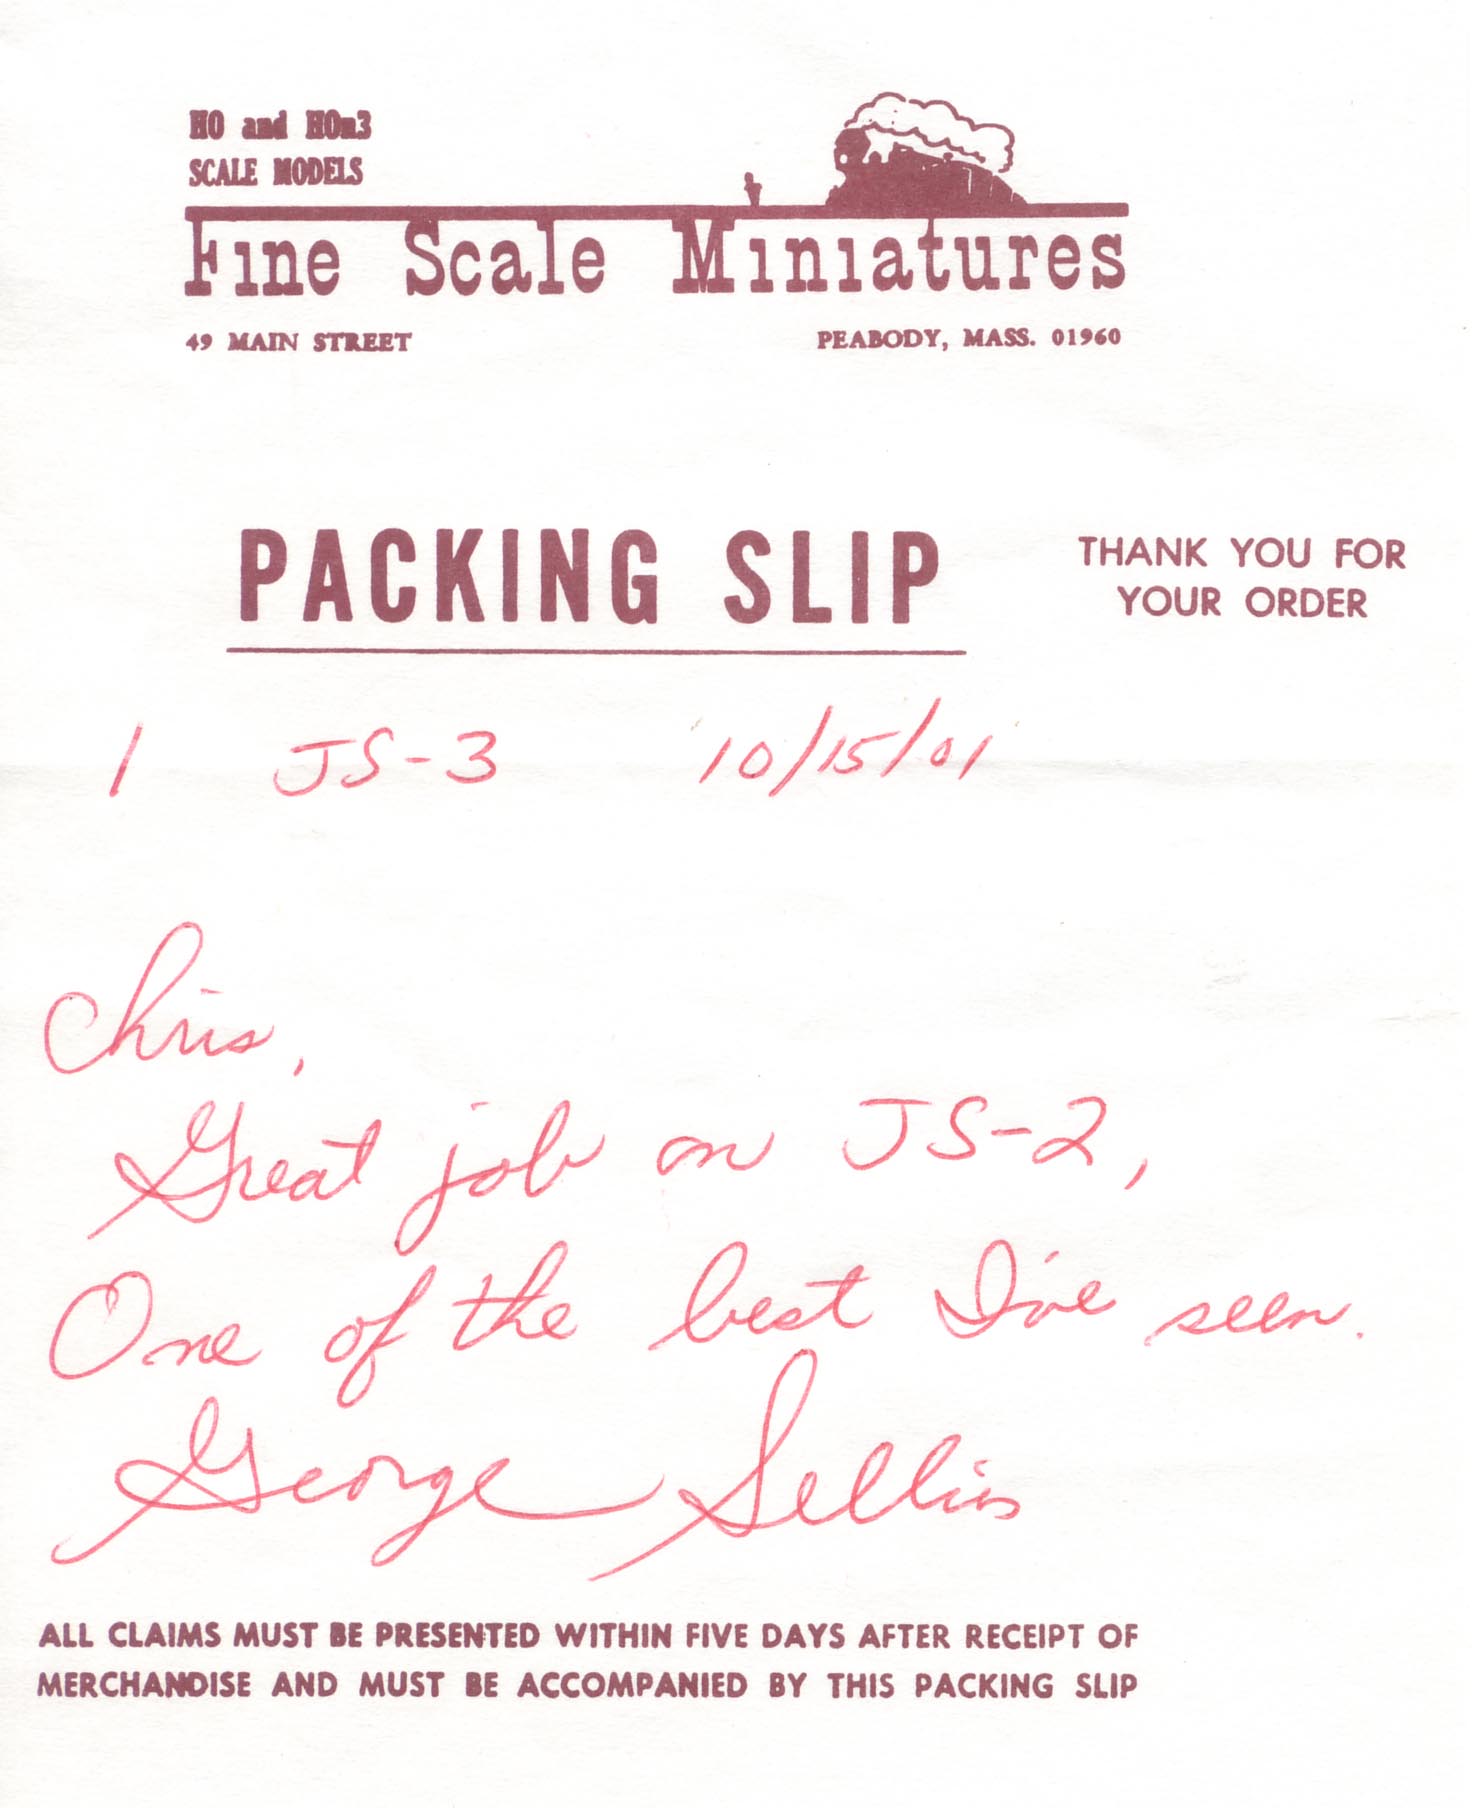 HO and HOn3
SCALE MODELS
Fine Scale Miniatures
49 MAIN STREET PEABODY, MASS. 01960
PACKING SLIP
THANK YOU FOR
YOUR ORDER
1 JS-3 10/15/01
Chris,
Great job on JS-2,
One of the best I've seen.
George Sellios
ALL CLAIMS MUST BE PRESENTED WITHIN FIVE DAYS AFTER RECEIPT OF
MERCHANDISE AND MUST BE ACCOMPANIED BY THIS PACKING SLIP